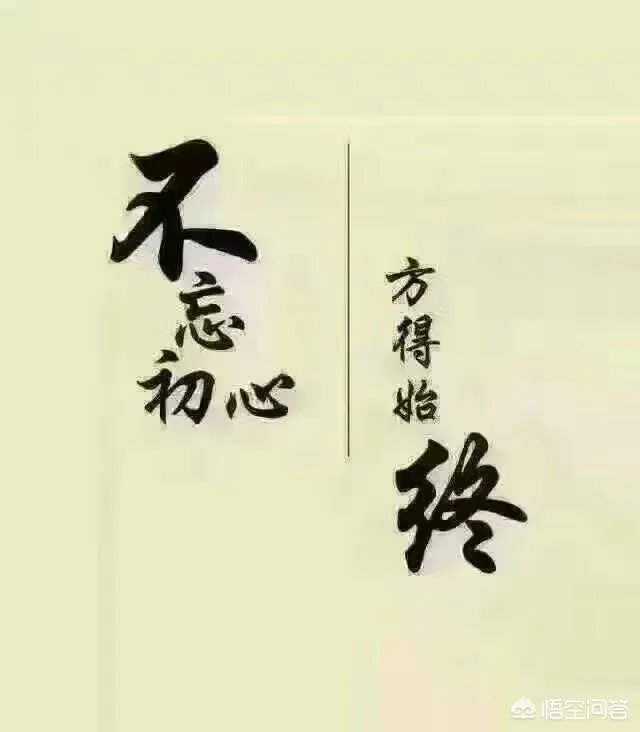 不忘初心
方得始终
悟空问答